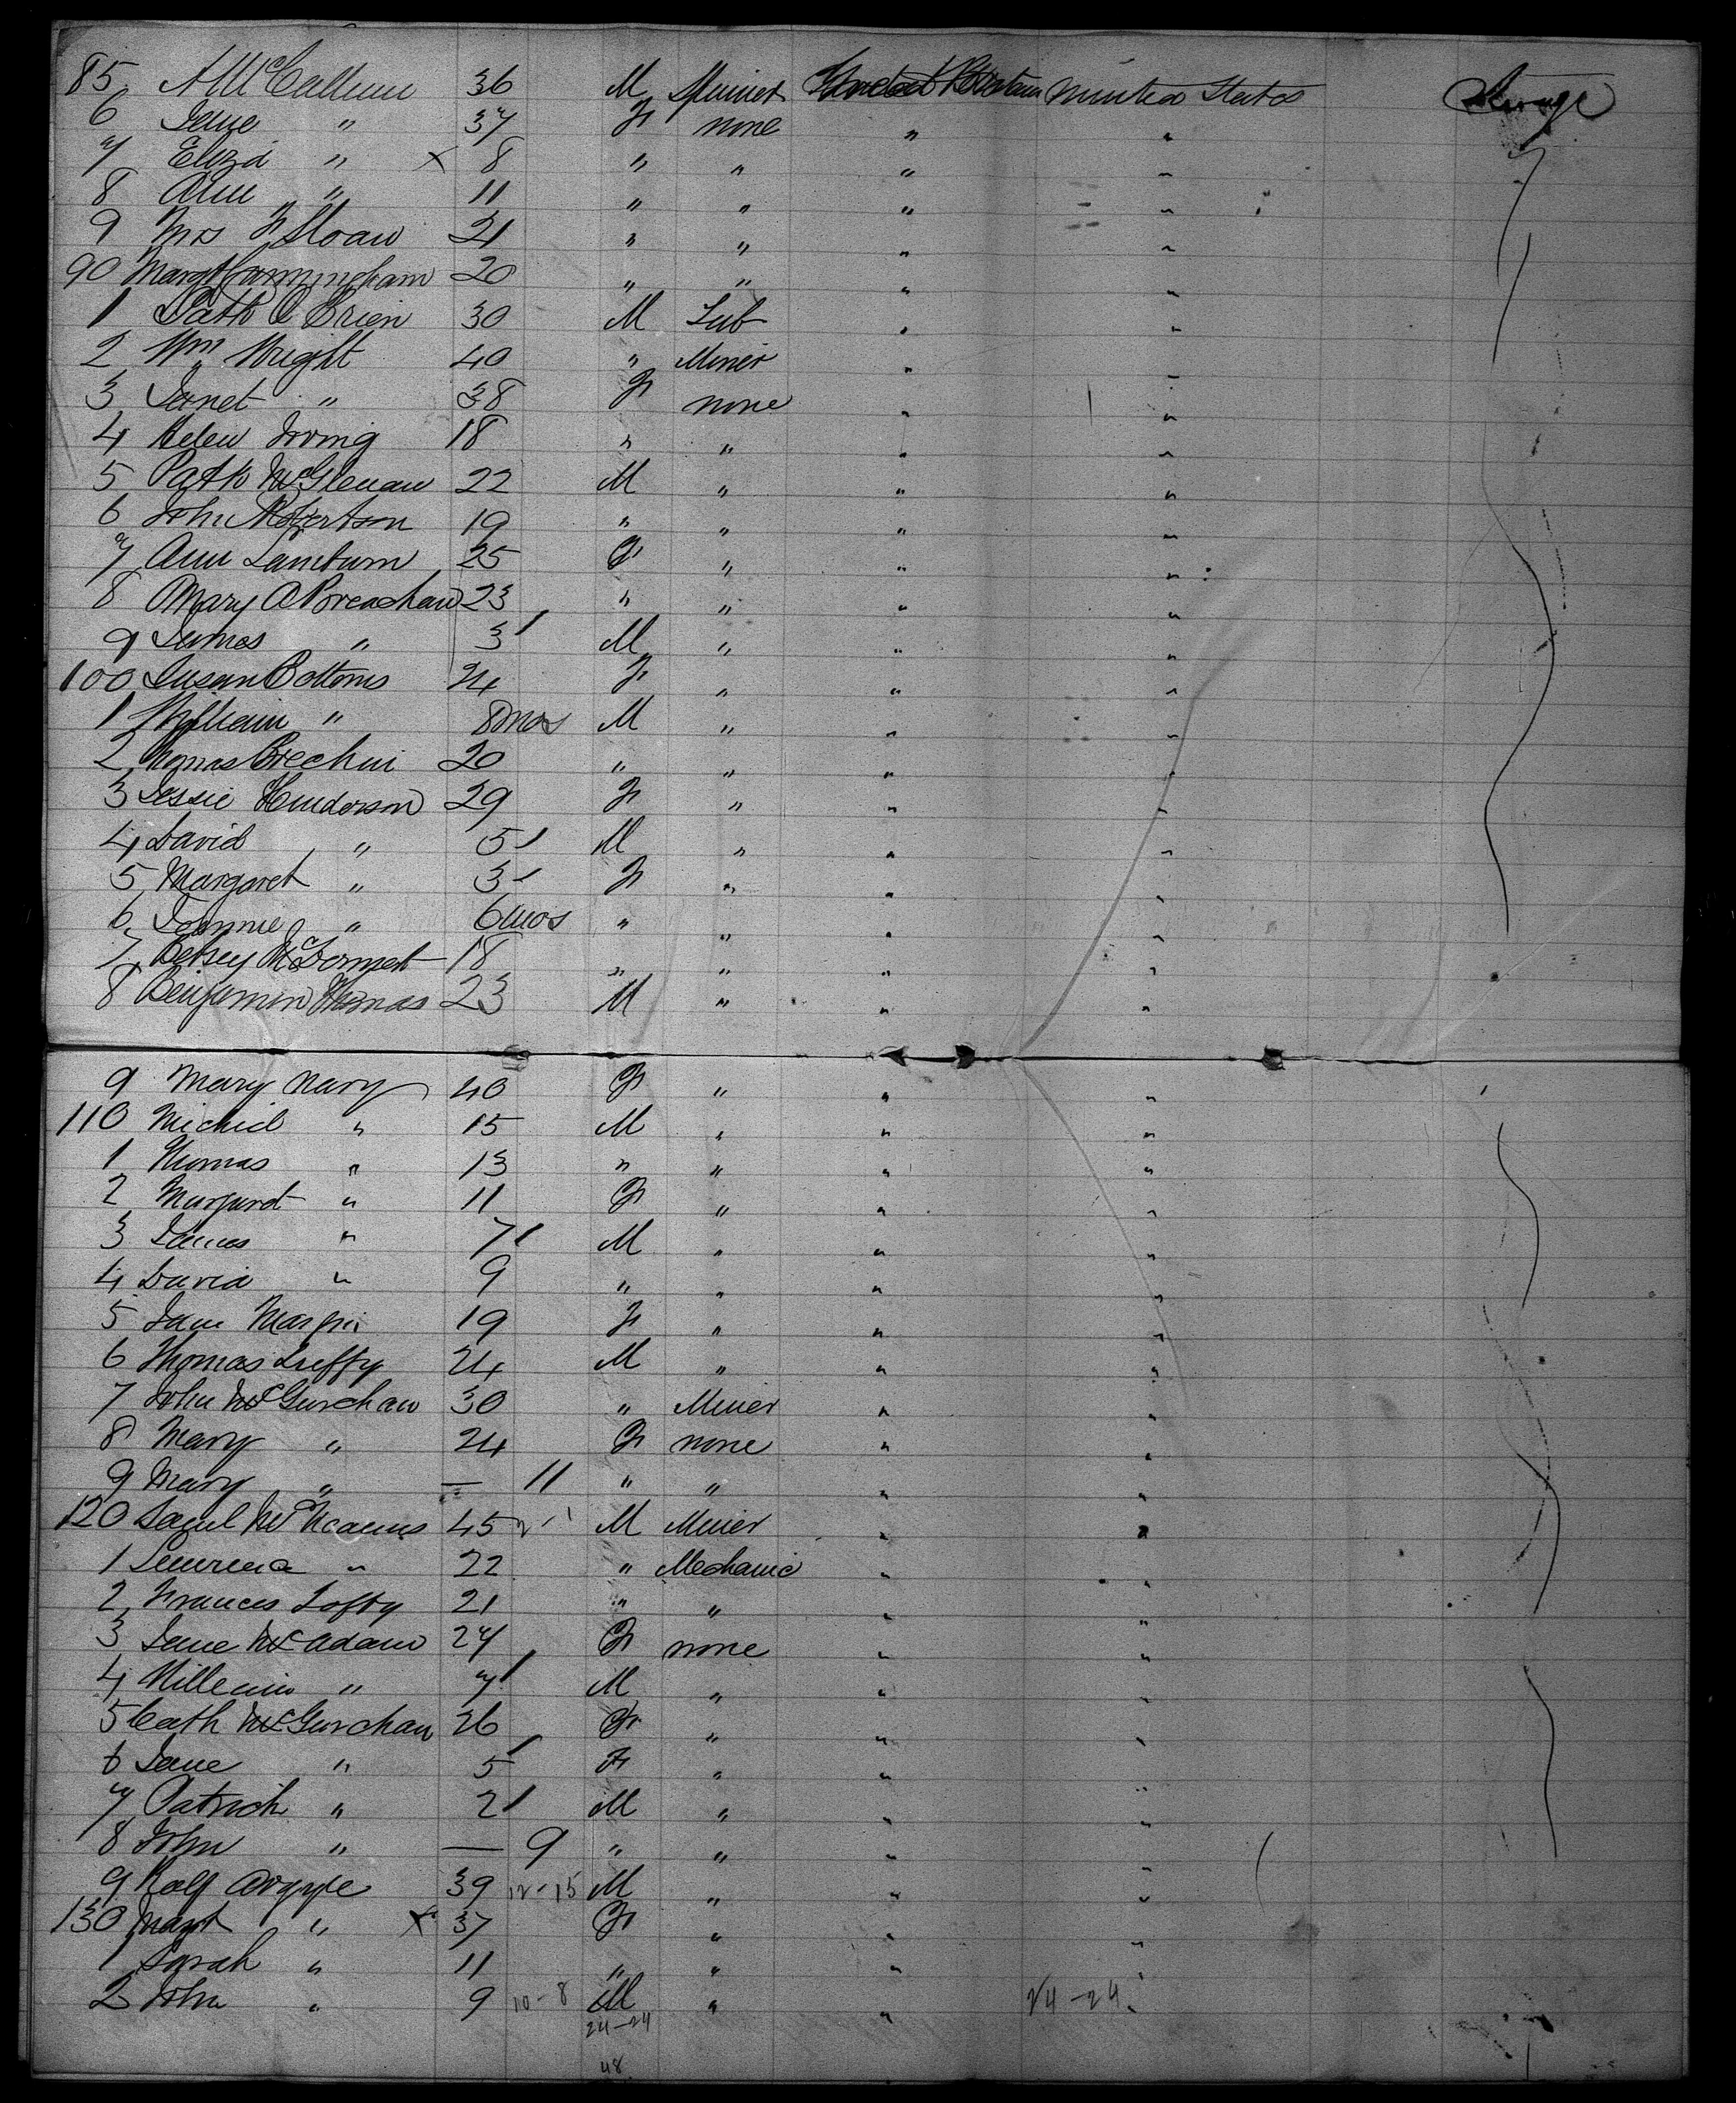 85 A McCallum 36 M Miner Great Britain United States Steerage
6 Jane " 37 F none " "
7 Eliza " x 8 " " " "
8 Ann " 11 " " " "
9 Mrs F Sloan 21 " " " "
90 Margt Cunningham 20 " " " "
1 Patk O Brien 30 M Lab " "
2 Wm Wright 40 " Miner " "
3 Janet " 38 F none " "
4 Helen Irving 18 " " " "
5 Patk McGlenan 22 M " " "
6 John Robertson 19 " " " "
7 Ann Lamburn 25 F " " "
8 Mary A Breashaw 23 " " " "
9 James " 3 M " " "
100 Susan Bottoms 24 F " " "
1 William " 8mos M " " "
2 Thomas Brechin 20 " " " "
3 Jessie Henderson 29 F " " "
4 David " 5 M " " "
5 Margaret " 3 F " " "
6 " 6mos " " " "
7 Betsey McDormet 18 " " " "
8 Benjamin Thomas 23 M " " "
9 Mary Navy 40 F " " "
110 Michiel " 15 M " " "
1 Thomas " 13 " " " "
2 Margaret " 11 F " " "
3 James " 7 M " " "
4 David " 9 " " " "
5 Jane 19 F " " "
6 Thomas Luffy 24 M " " "
7 John McGurchan 30 " Miner " "
8 Mary " 24 F none " "
9 Mary " — 11 " " " "
120 Saml 45 M Miner " "
1 " 22 " Mechanic " "
2 Frances Lofty 21 " " " "
3 Jane McAdam 27 F none " "
4 William " 7 M " " "
5 Cath McGurchan 26 F " " "
6 Jane " 5 F " " "
7 Patrick " 2 M " " "
8 John " — 9 " " " "
9 Rolf Argyle 39 12-15 M " " "
130 Margt " x 37 F " " "
1 Sarah " 11 " " " "
2 John " 9 10-8 M " " 24-24
24-24
48